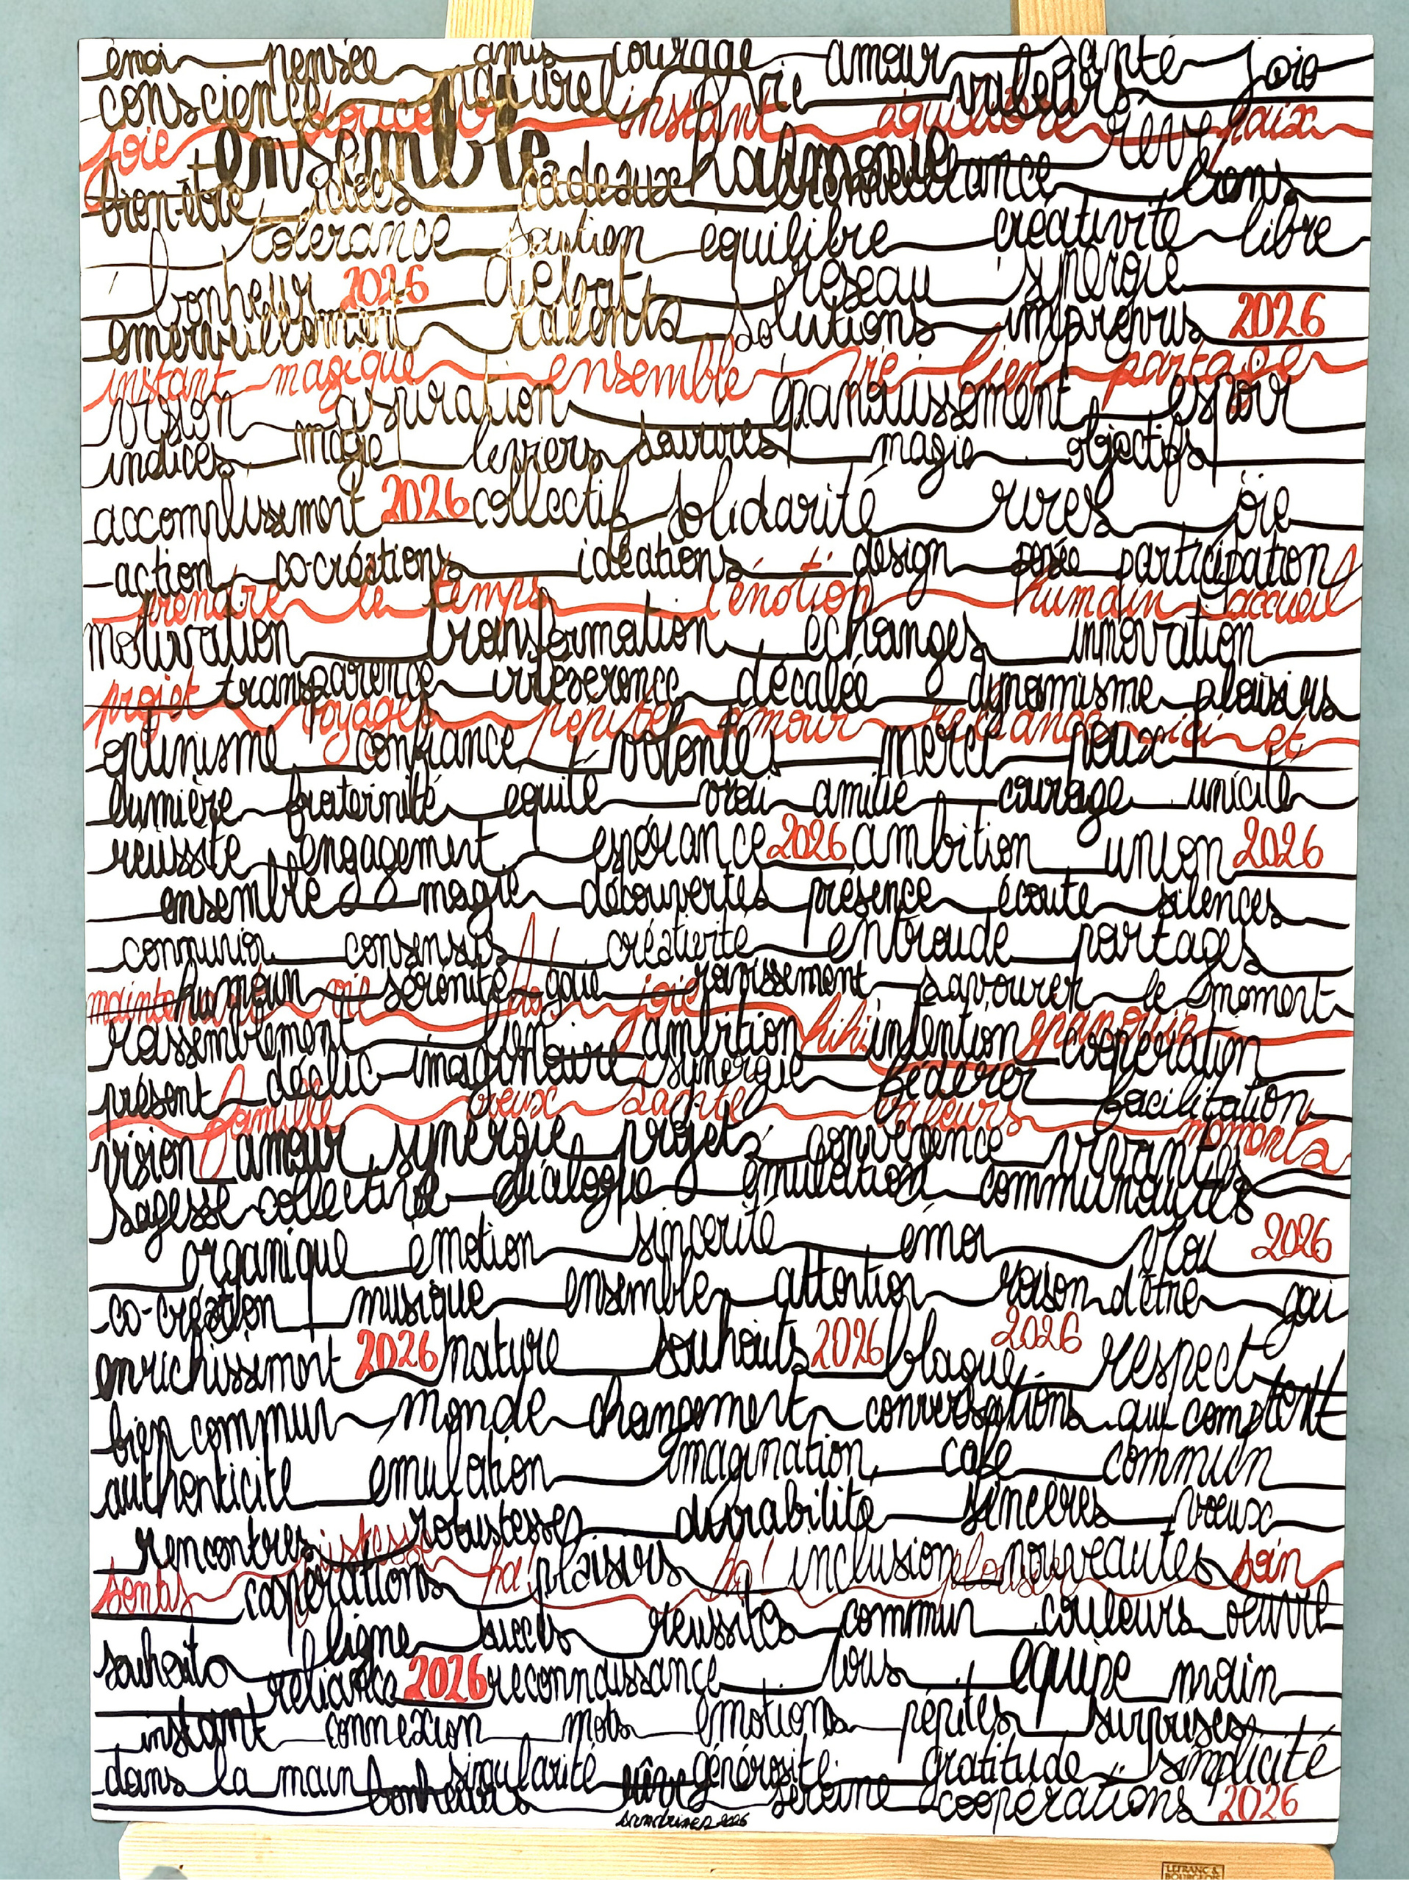 émoi pensée amis courage amour santé joie
conscience naturel vie valeurs
joie douceur instant équilibre paix
ensemble harmonie rêve
bien-être idées cadeaux bienveillance liens
tolérance soutien équilibre créativité libre
bonheur 2026 débats réseau synergie
émerveillement talents solutions imprévus 2026
instant magique ensemble vie lien partage
vision aspiration épanouissement espoir
indices magie leviers sourires magie objectifs
accomplissement 2026 collectif solidarité rires joie
action co-créations idéations design posée participation
prendre le temps l'émotion humain accueil
motivation transformation échanges innovation
projet transparence décalée dynamisme plaisirs
voyages pépite amour ici et
optimisme confiance volontés merci
lumière fraternité équité vrai amitié courage unicité
réussite engagement espérance 2026 ambition union 2026
ensemble magie découvertes présence écoute silences
communion consensus créativité entraide partages
humain vie sérénité joie savourer le moment
rassemblement ambition hihi intention coopération
présent déclic imaginaire synergie fédérer facilitation
famille voeux santé valeurs moments
vision amour synergie projets convergence vivantes
sagesse collective dialogue émulation communautés
organique émotion sincérité émoi vrai 2026
co-création musique ensemble attention raison d'être gai
enrichissement 2026 nature souhaits 2026 blague 2026 respect
bien commun monde changement conversations qui comptent
authenticité émulation imagination café commun
rencontres robustesse durabilité sincères voeux
sentis coopérations ha! plaisirs ha! inclusion nouveautés soin
ligne succès réussites commun couleurs oeuvre
souhaits reliance 2026 reconnaissance tous équipe main
instant connexion mots émotions pépites surprises
dans la main singularité générosité gratitude simplicité
bonheurs sereine coopérations 2026